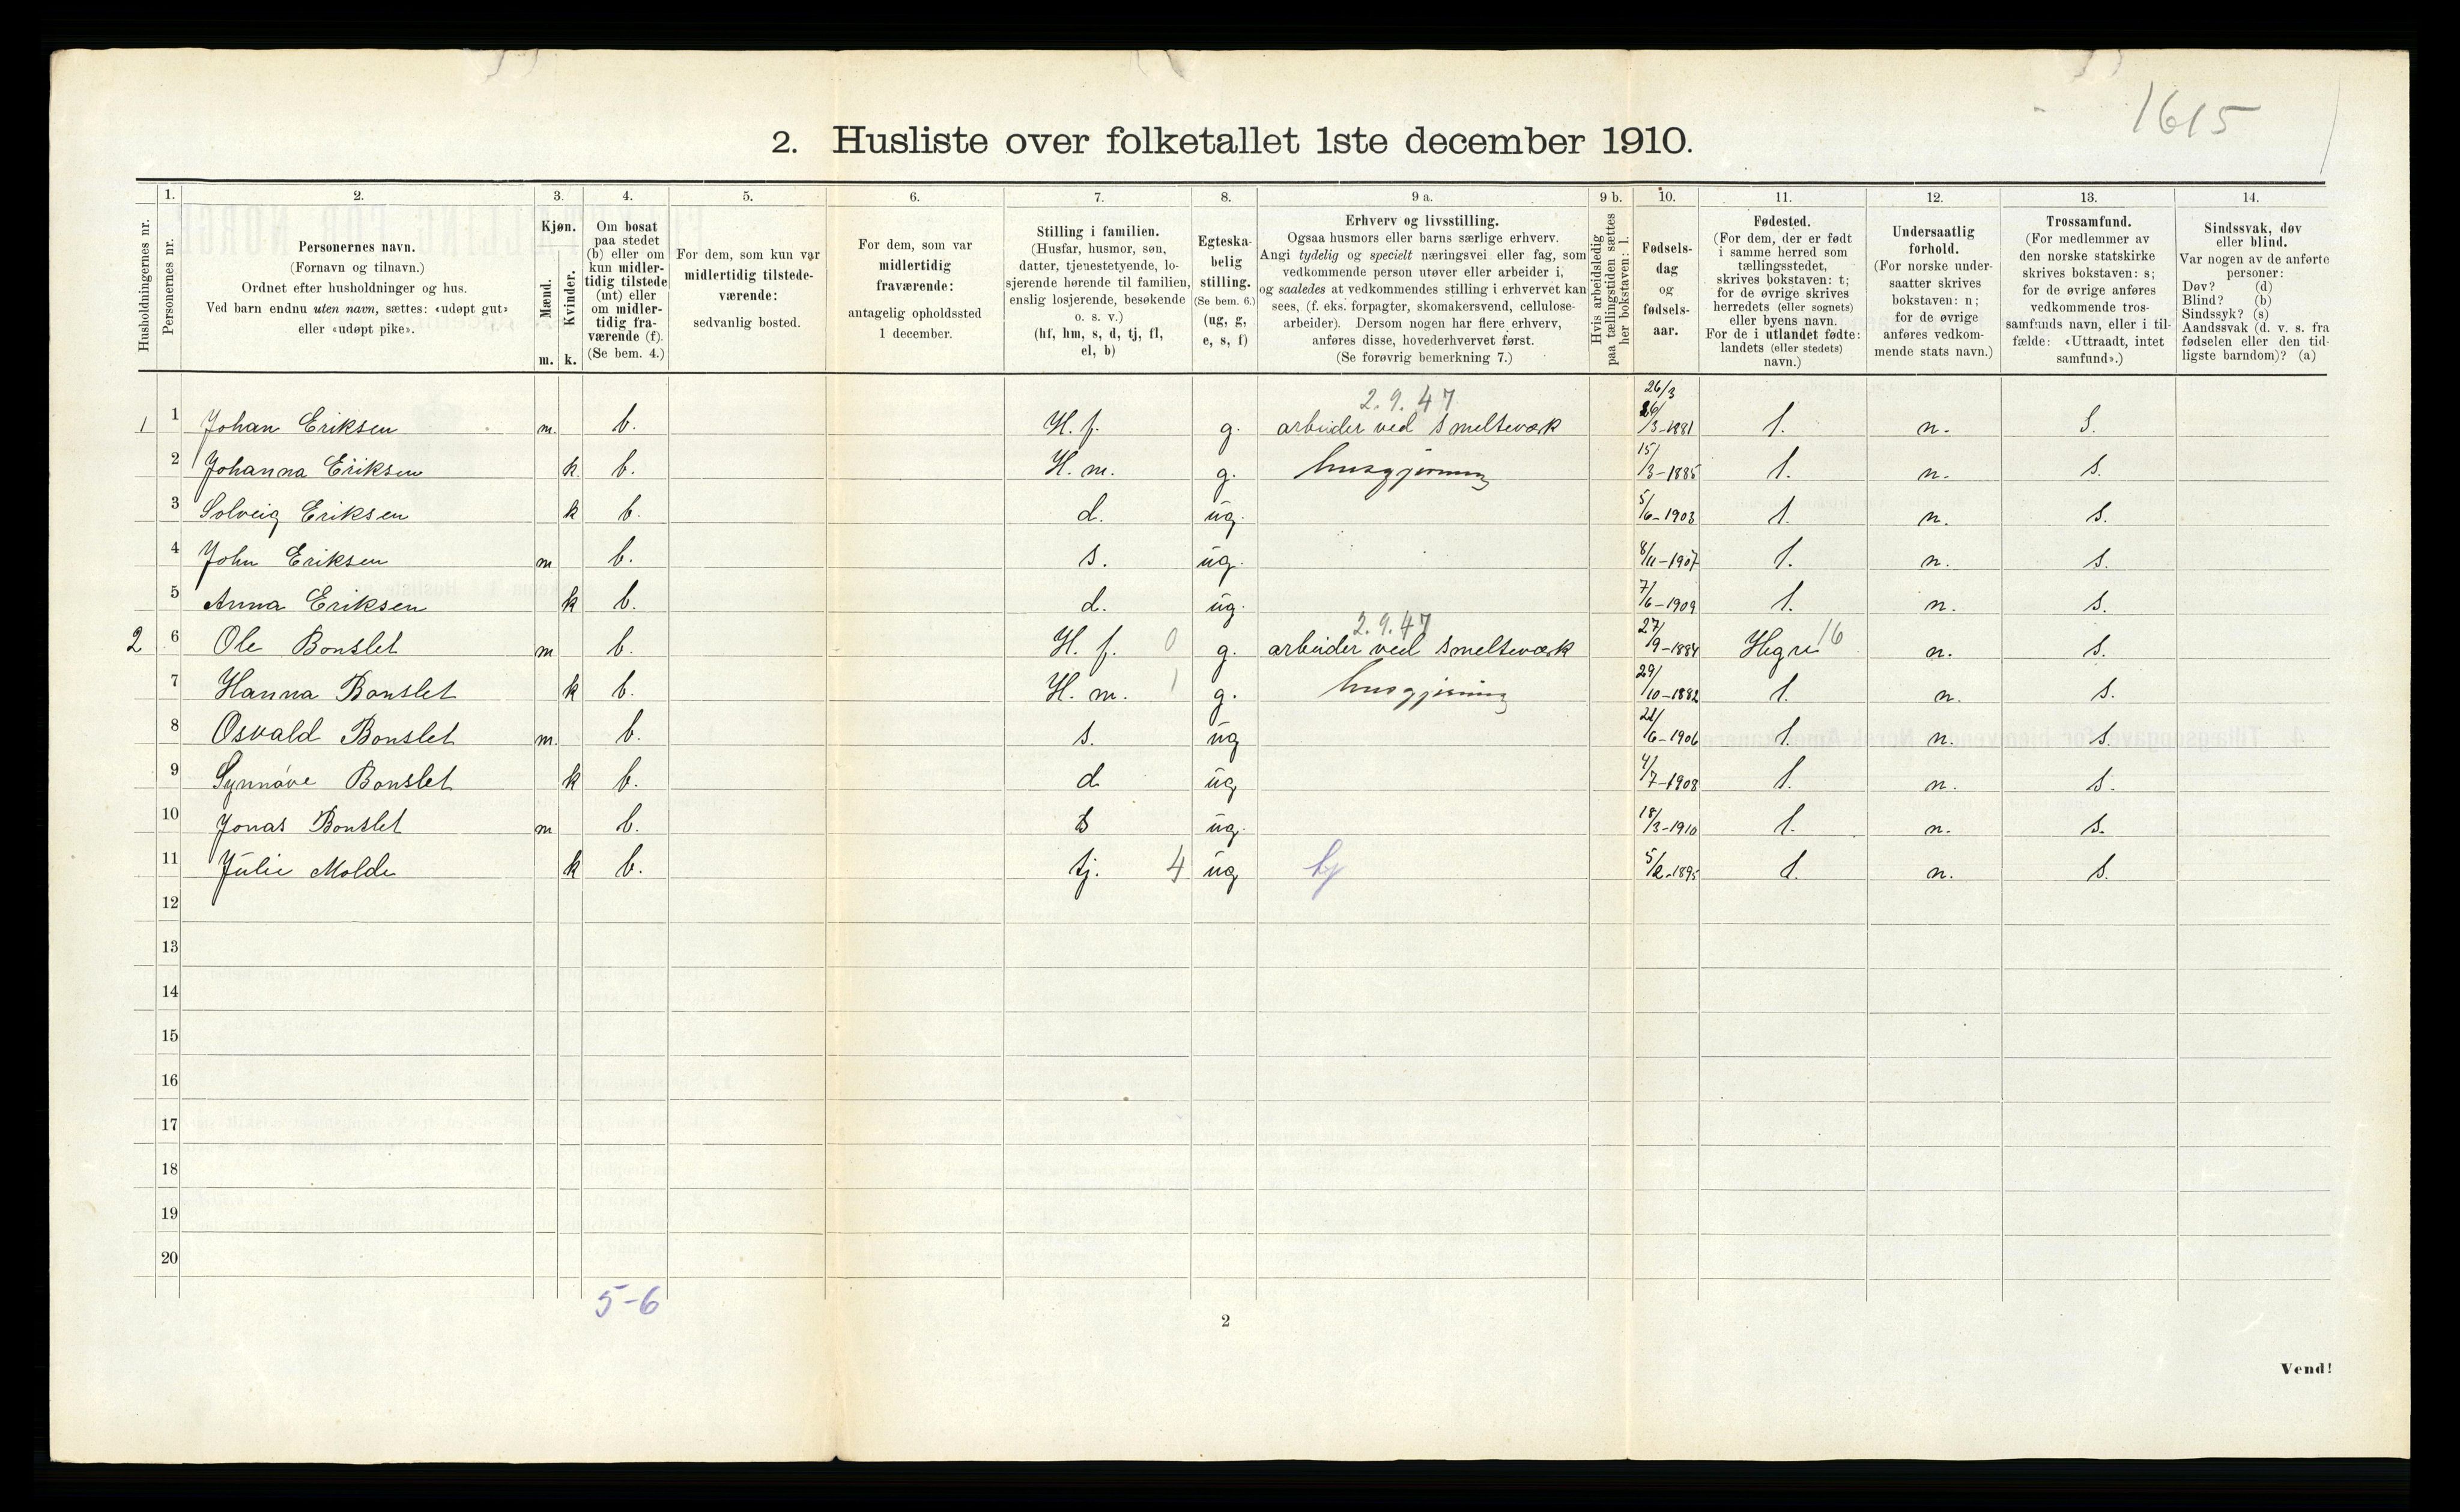 1615
2. Husliste over folketallet 1ste december 1910.
Husholdningernes nr.
1. Personernes nr.
2. Personernes navn. (Fornavn og tilnavn.) Ordnet efter husholdninger og hus. Ved barn endnu uten navn, sættes: «udøpt gut» eller «udøpt pike».
3. Kjøn. Mænd. m. Kvinder. k.
4. Om bosat paa stedet (b) eller om kun midlertidig tilstede (mt) eller om midlertidig fraværende (f). (Se bem. 4.)
5. For dem, som kun var midlertidig tilstedeværende: sedvanlig bosted.
6. For dem, som var midlertidig fraværende: antagelig opholdssted 1 december.
7. Stilling i familien. (Husfar, husmor, søn, datter, tjenestetyende, losjerende hørende til familien, enslig losjerende, besøkende o. s. v.) (hf, hm, s, d, tj, fl, el, b)
8. Egteskabelig stilling. (Se bem. 6.) (ug, g, e, s, f)
9 a. Erhverv og livsstilling. Ogsaa husmors eller barns særlige erhverv. Angi tydelig og specielt næringsvei eller fag, som vedkommende person utøver eller arbeider i, og saaledes at vedkommendes stilling i erhvervet kan sees, (f. eks. forpagter, skomakersvend, cellulosearbeider). Dersom nogen har flere erhverv, anføres disse, hovederhvervet først. (Se forøvrig bemerkning 7.)
9 b. Hvis arbeidsledig paa tællingstiden sættes her bokstaven: l.
10. Fødselsdag og fødselsaar.
11. Fødested. (For dem, der er født i samme herred som tællingsstedet, skrives bokstaven: t; for de øvrige skrives herredets (eller sognets) eller byens navn. For de i utlandet fødte: landets (eller stedets) navn.)
12. Undersaatlig forhold. (For norske undersaatter skrives bokstaven: n; for de øvrige anføres vedkommende stats navn.)
13. Trossamfund. (For medlemmer av den norske statskirke skrives bokstaven: s; for de øvrige anføres vedkommende trossamfunds navn, eller i tilfælde: «Uttraadt, intet samfund».)
14. Sindssvak, døv eller blind. Var nogen av de anførte personer: Døv? (d) Blind? (b) Sindssyk? (s) Aandssvak (d. v. s. fra fødselen eller den tidligste barndom)? (a)
2.9.47 26/3
1 1 Johan Eriksen m. b. H. f. g. arbeider ved Smelteværk 26/3-1881 t. n. S.
2 Johanna Eriksen k. b. H. m. g. husgjerning 15/3-1885 t. n. S.
3 Solveig Eriksen k b. d. ug. 5/6-1903 t. n. S.
4 John Eriksen m b. s. ug. 8/11-1907 t. n. S.
5 Anna Eriksen k b. d. ug. 7/6-1909 t. n. S.
2.9.47
2 6 Ole Bonslet m b. H. f. 0 g. arbeider ved Smelteværk 27/9-1884 Hegre 16 n. S.
7 Hanna Bonslet k b. H. m. 1 g. husgjerning 29/10-1882 t. n. S.
8 Osvald Bonslet m. b. s. ug 22/6-1906 t. n. S.
9 Synnøve Bonslet k b. d ug 4/7-1908 t. n. S.
10 Jonas Bonslet m b. s ug. 18/3-1910 t. n. S.
11 Julie Molde k b. tj. 4 ug tj 5/2-1895 t. n. S.
12
13
14
15
16
17
18
19
20
5-6
2
Vend!